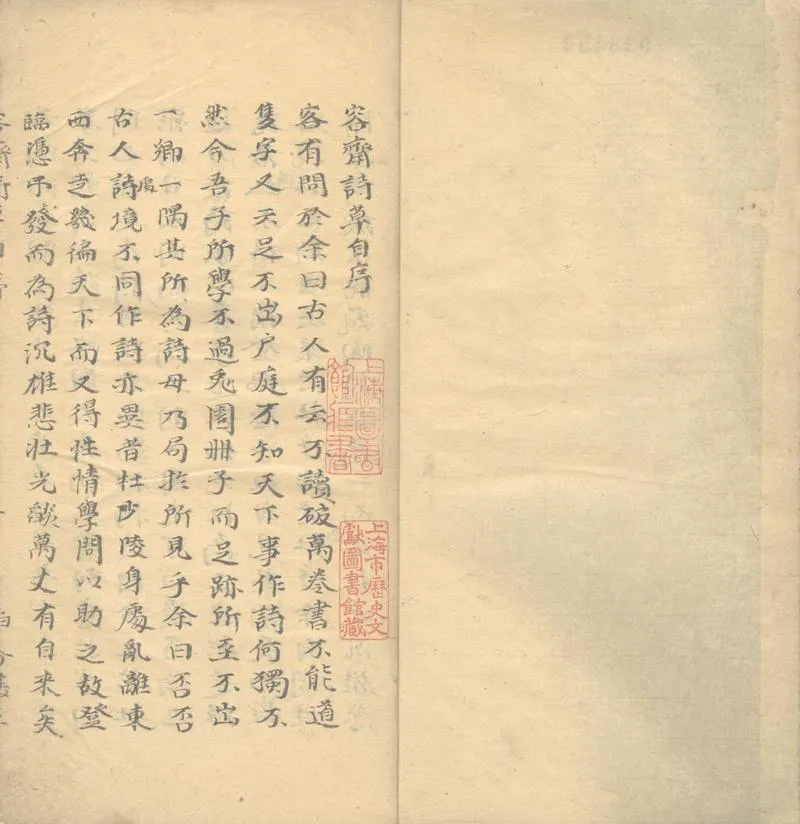 容齋詩草自序
客有問於余曰古人有云不讀破萬卷書不能道
隻字又云足不出户庭不知天下事作詩何獨不
然今吾子所學不過兎園冊子而足跡所至不出
一鄉一隅其所為詩毋乃局扵所見乎余曰否否
古人詩境不同作詩亦異昔杜少陵身處亂離東
處
西奔走幾徧天下而又得性情學問以助之故登
臨憑弔發而為詩沉雄悲壯光燄萬丈有自来矣
上海市歷史文
獻圖書館藏